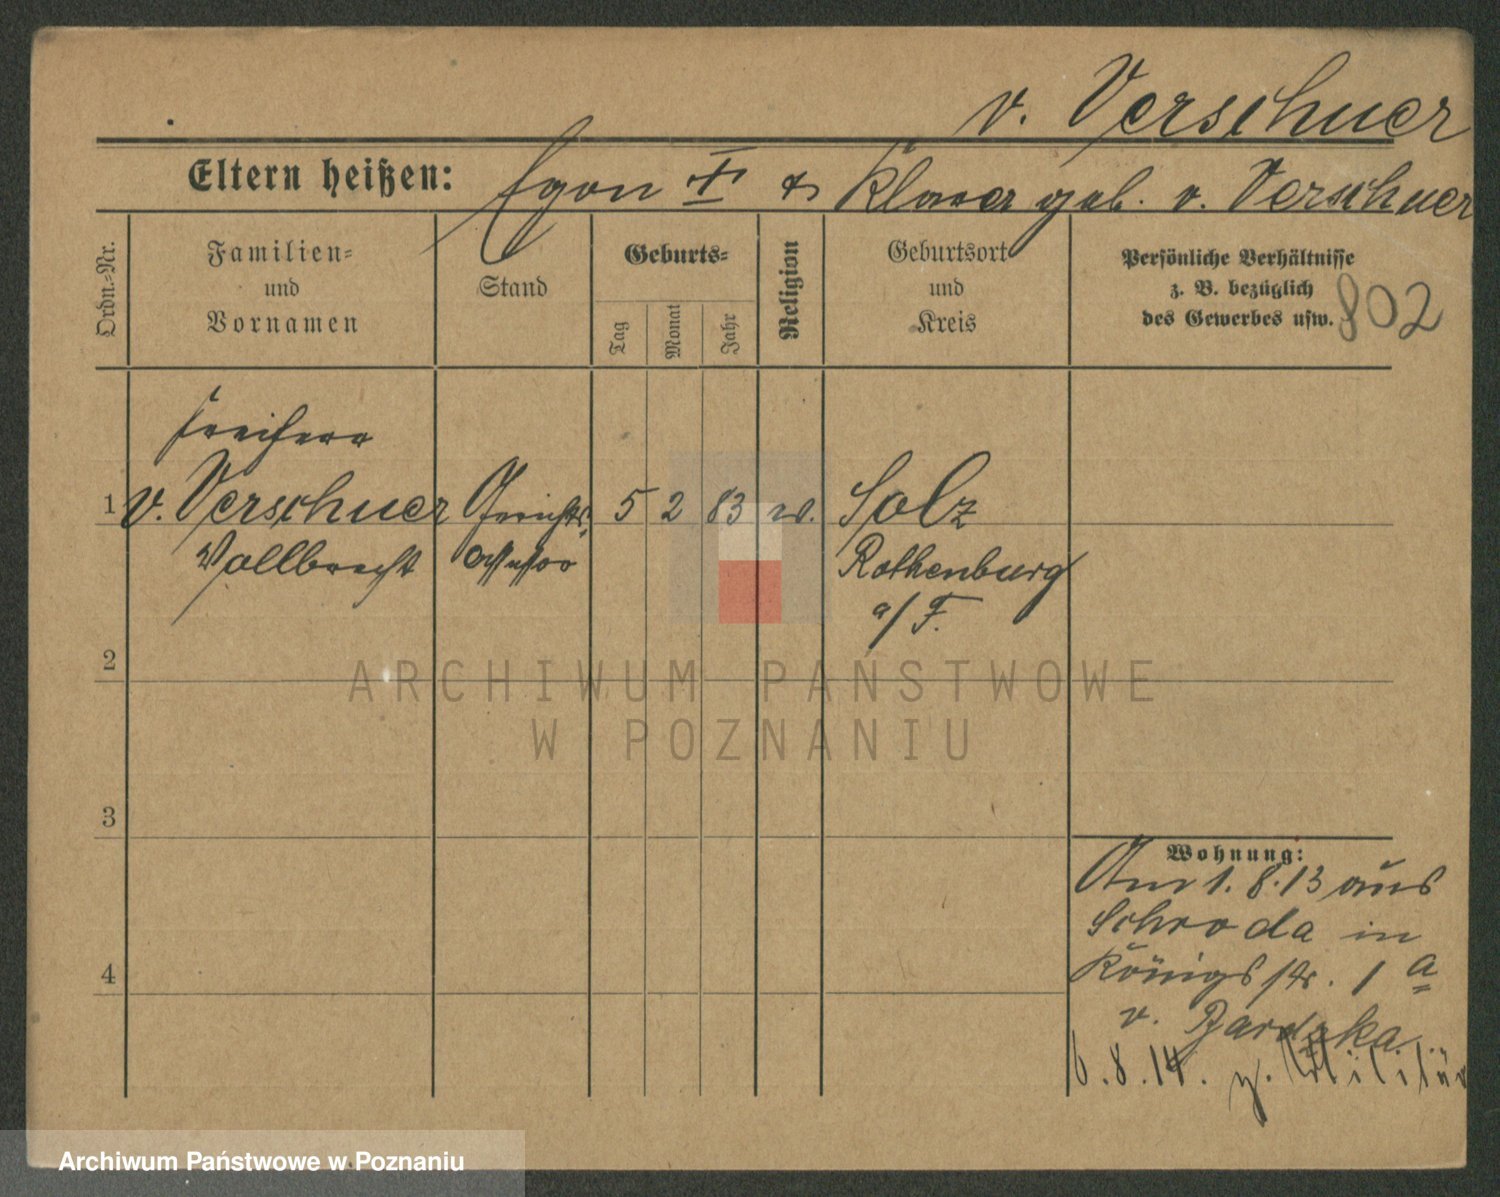 v. Verschuer
Eltern heißen: Egon † & Klara geb. v. Verschuer
Ordn.-Nr.
Familien-
und
Vornamen
Stand
Geburts-
Tag
Monat
Jahr
Religion
Geburtsort
und
Kreis
Persönliche Verhältnisse
z. B. bezüglich
des Gewerbes usw.
802
Freiherr
1 v. Verschuer Gerichts- 5 2 83 ev. Solz
Vollbrecht Assessor Rothenburg
a/F.
2
3
4
Wohnung:
Am 1.8.13 aus
Schroda in
Königsstr. 1 a
v. Bardzka
6.8.14. z. Militär
ARCHIWUM PAŃSTWOWE
W POZNANIU
Archiwum Państwowe w Poznaniu